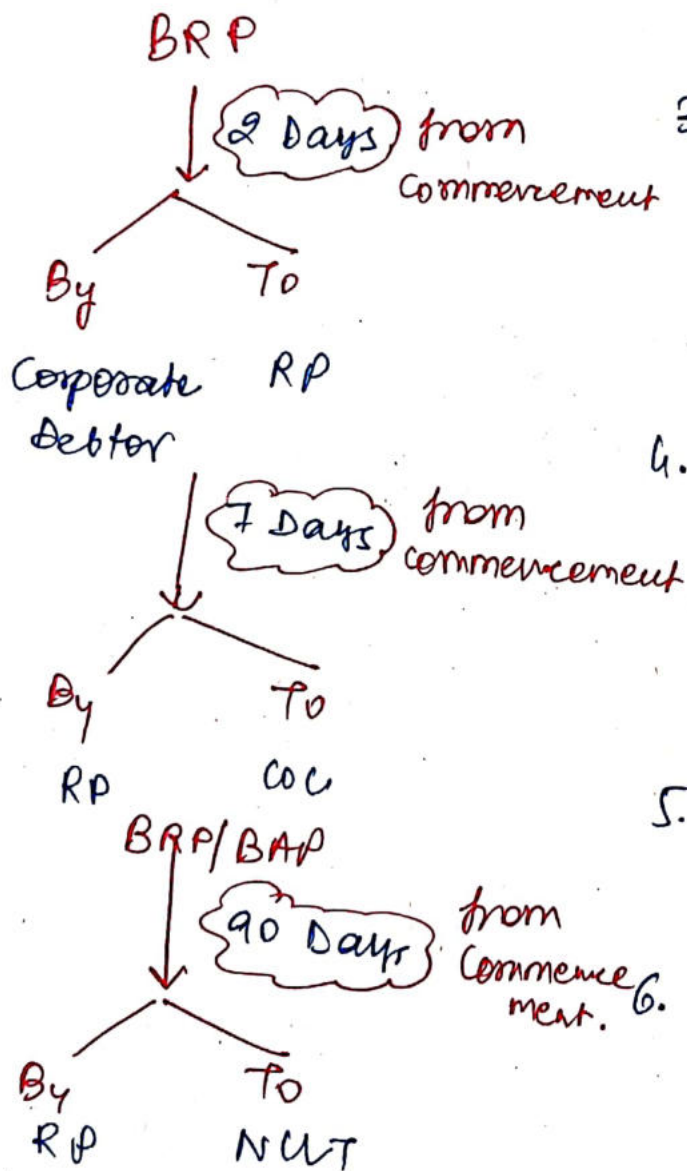 BRP
2 Days from
commencement
By To
Corporate RP
Debtor
4.
7 Days from
commencement
By To
RP COC
5.
BRP/BAP
90 Days from
Commence
ment. 6.
By To
RP NCLT